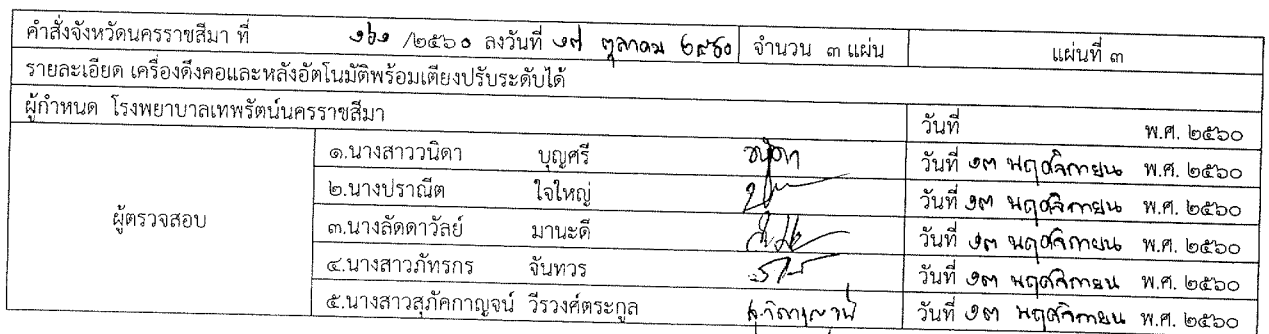 คำสั่งจังหวัดนครราชสีมา ที่ ๑๖๑ /๒๕๖๐ ลงวันที่ ๑๗ ตุลาคม ๒๕๖๐ จำนวน ๓ แผ่น แผ่นที่ ๓
รายละเอียด เครื่องดึงคอและหลังอัตโนมัติพร้อมเตียงปรับระดับได้
ผู้กำหนด โรงพยาบาลเทพรัตน์นครราชสีมา วันที่ พ.ศ. ๒๕๖๐
๑.นางสาววนิดา บุญศรี วนิดา วันที่ ๑๓ พฤศจิกายน พ.ศ. ๒๕๖๐
๒.นางปราณีต ใจใหญ่ วันที่ ๑๓ พฤศจิกายน พ.ศ. ๒๕๖๐
ผู้ตรวจสอบ ๓.นางลัดดาวัลย์ มานะดี วันที่ ๑๓ พฤศจิกายน พ.ศ. ๒๕๖๐
๔.นางสาวภัทรกร จันทวร วันที่ ๑๓ พฤศจิกายน พ.ศ. ๒๕๖๐
๕.นางสาวสุภัคกาญจน์ วีรวงศ์ตระกูล วันที่ ๑๓ พฤศจิกายน พ.ศ. ๒๕๖๐